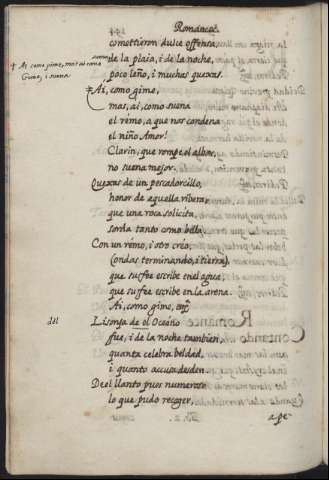 Romances.
cometieron dulce offensa,
de la plaia, i de la noche,
poco leño, i muchas quexas.
+ Ai, como gime, mas ai como
Gime, i suena
+ Ai, como gime,
mas, ai, como suena
el rémo, a que nos condena
el niño Amor!
Clarin, que rompe el albor,
no suena mejor.
Quexas de un pescadorcillo,
honor de aquella ribera,
que una roca solicita,
sorda tanto como bella.
Con un rémo, i otro creo,
(ondas terminando, i tierra)
que su fee escribe en el agua,
que su fee escribe en la arena.
Ai, como gime, &
del
Lisonja de el Oceáno
fue, i de la noche tambien,
quanta celebra beldad,
i quanto acusa desden.
De el llanto pues numeroso
lo que pudo recoger,
a pe-